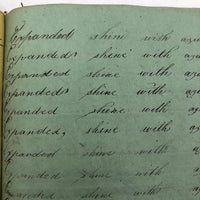 Expanded shine with azu
Expanded, shine with azu
Expanded shine with azu
Expanded, shine with azu
Expanded shine with az
Expanded, shine with az
Expanded shine with az
Expanded shine with az
Expanded shine with az